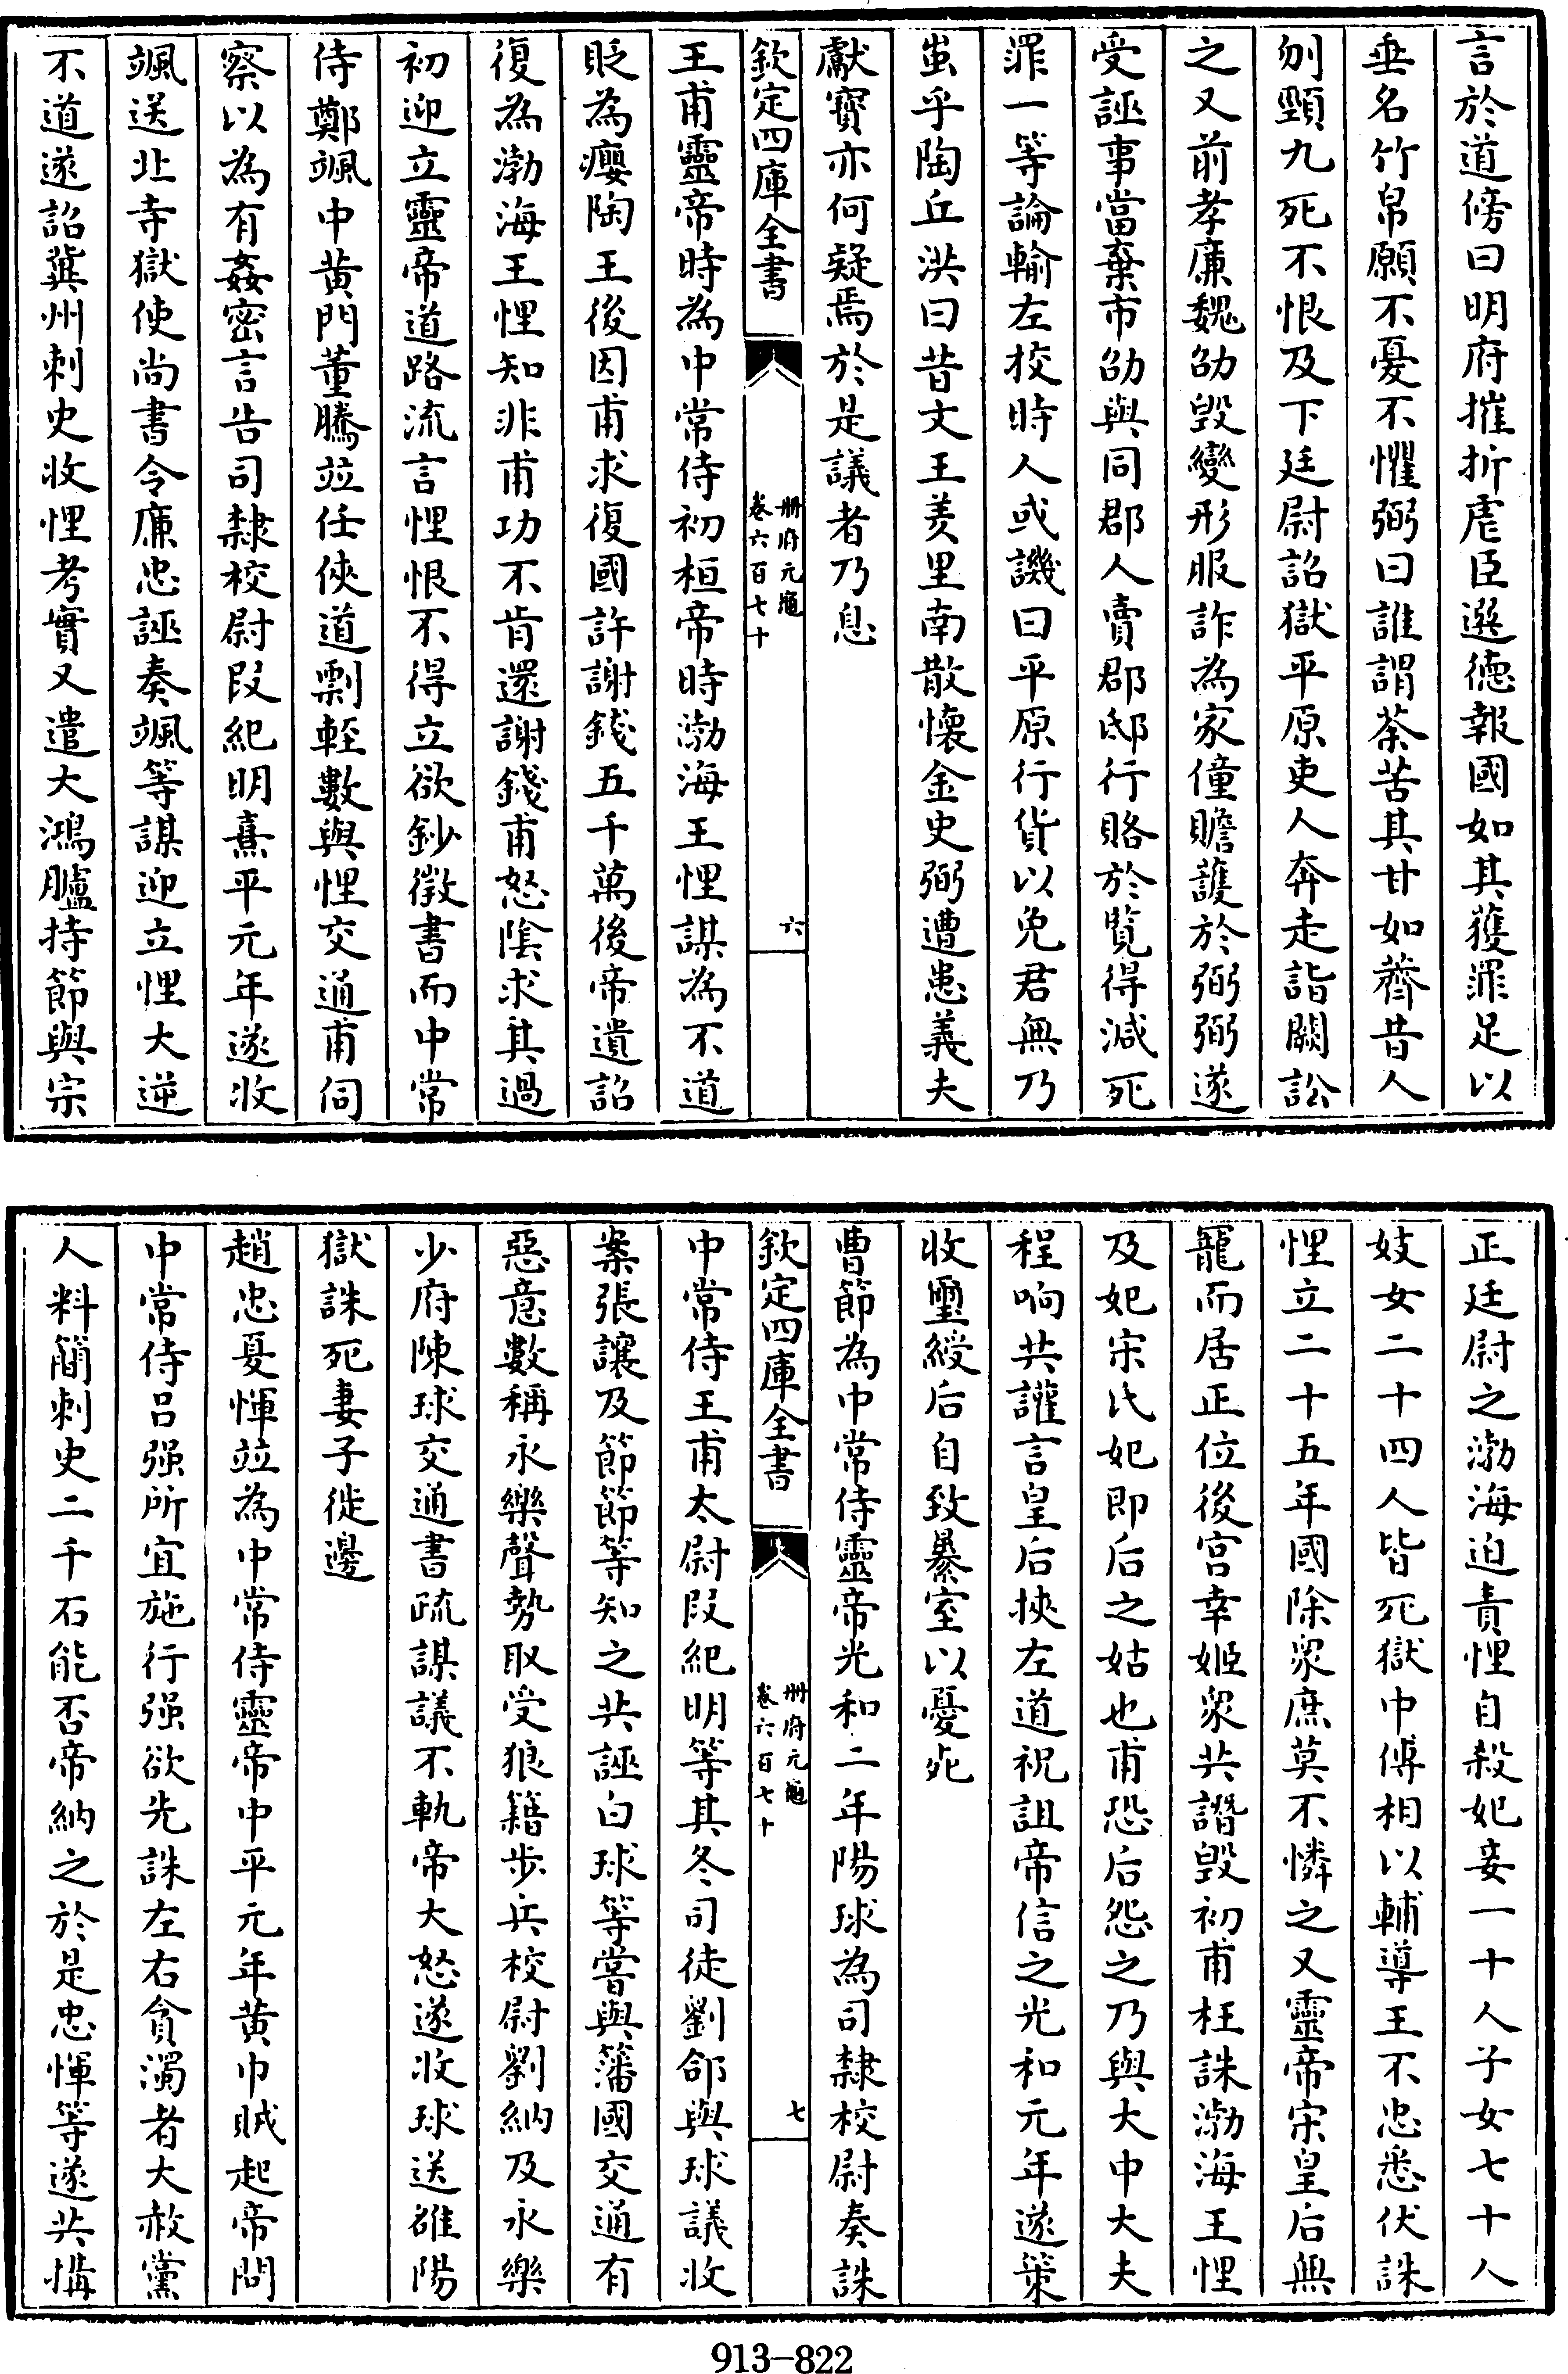 言於道傍曰明府摧折虐臣選德報國如其獲罪足以
垂名竹帛願不憂不懼弼曰誰謂荼苦其甘如薺昔人
刎頸九死不恨及下廷尉詔獄平原吏人奔走詣闕訟
之又前孝廉魏劭毀變形服詐為家僮瞻護於弼弼遂
受誣事當棄市劭與同郡人賣郡邸行賂於覽得減死
罪一等論輸左校時人或譏曰平原行貨以免君無乃
蚩乎陶丘洪曰昔文王羑里南散懷金史弼遭患義夫
獻寶亦何疑焉於是議者乃息
欽定四庫全書
冊府元龜
卷六百七十
六
王甫靈帝時為中常侍初桓帝時渤海王悝謀為不道
貶為癭陶王後因甫求復國許謝錢五千萬後帝遺詔
復為渤海王悝知非甫功不肯還謝錢甫怒陰求其過
初迎立靈帝道路流言悝恨不得立欲鈔徵書而中常
侍鄭颯中黃門董騰竝任俠道剽輕數與悝交通甫伺
察以為有姦密言告司隸校尉段紀明熹平元年遂收
颯送北寺獄使尚書令廉忠誣奏颯等謀迎立悝大逆
不道遂詔冀州刺史收悝考實又遣大鴻臚持節與宗
正廷尉之渤海迫責悝自殺妃妾一十人子女七十人
妓女二十四人皆死獄中傅相以輔導王不忠悉伏誅
悝立二十五年國除眾庶莫不憐之又靈帝宋皇后無
寵而居正位後宮幸姬眾共譖毀初甫枉誅渤海王悝
及妃宋氏妃即后之姑也甫恐后怨之乃與大中大夫
程响共讙言皇后挾左道祝詛帝信之光和元年遂策
收璽綬后自致暴室以憂死
曹節為中常侍靈帝光和二年陽球為司隸校尉奏誅
欽定四庫全書
冊府元龜
卷六百七十
七
中常侍王甫太尉段紀明等其冬司徒劉郃與球議收
案張讓及節節等知之共誣白球等嘗與籓國交通有
惡意數稱永樂聲勢取受狼籍步兵校尉劉納及永樂
少府陳球交通書疏謀議不軌帝大怒遂收球送雒陽
獄誅死妻子徙邊
趙忠夏惲竝為中常侍靈帝中平元年黃巾賊起帝問
中常侍呂强所宜施行强欲先誅左右貪濁者大赦黨
人料簡刺史二千石能否帝納之於是忠惲等遂共搆
913-822